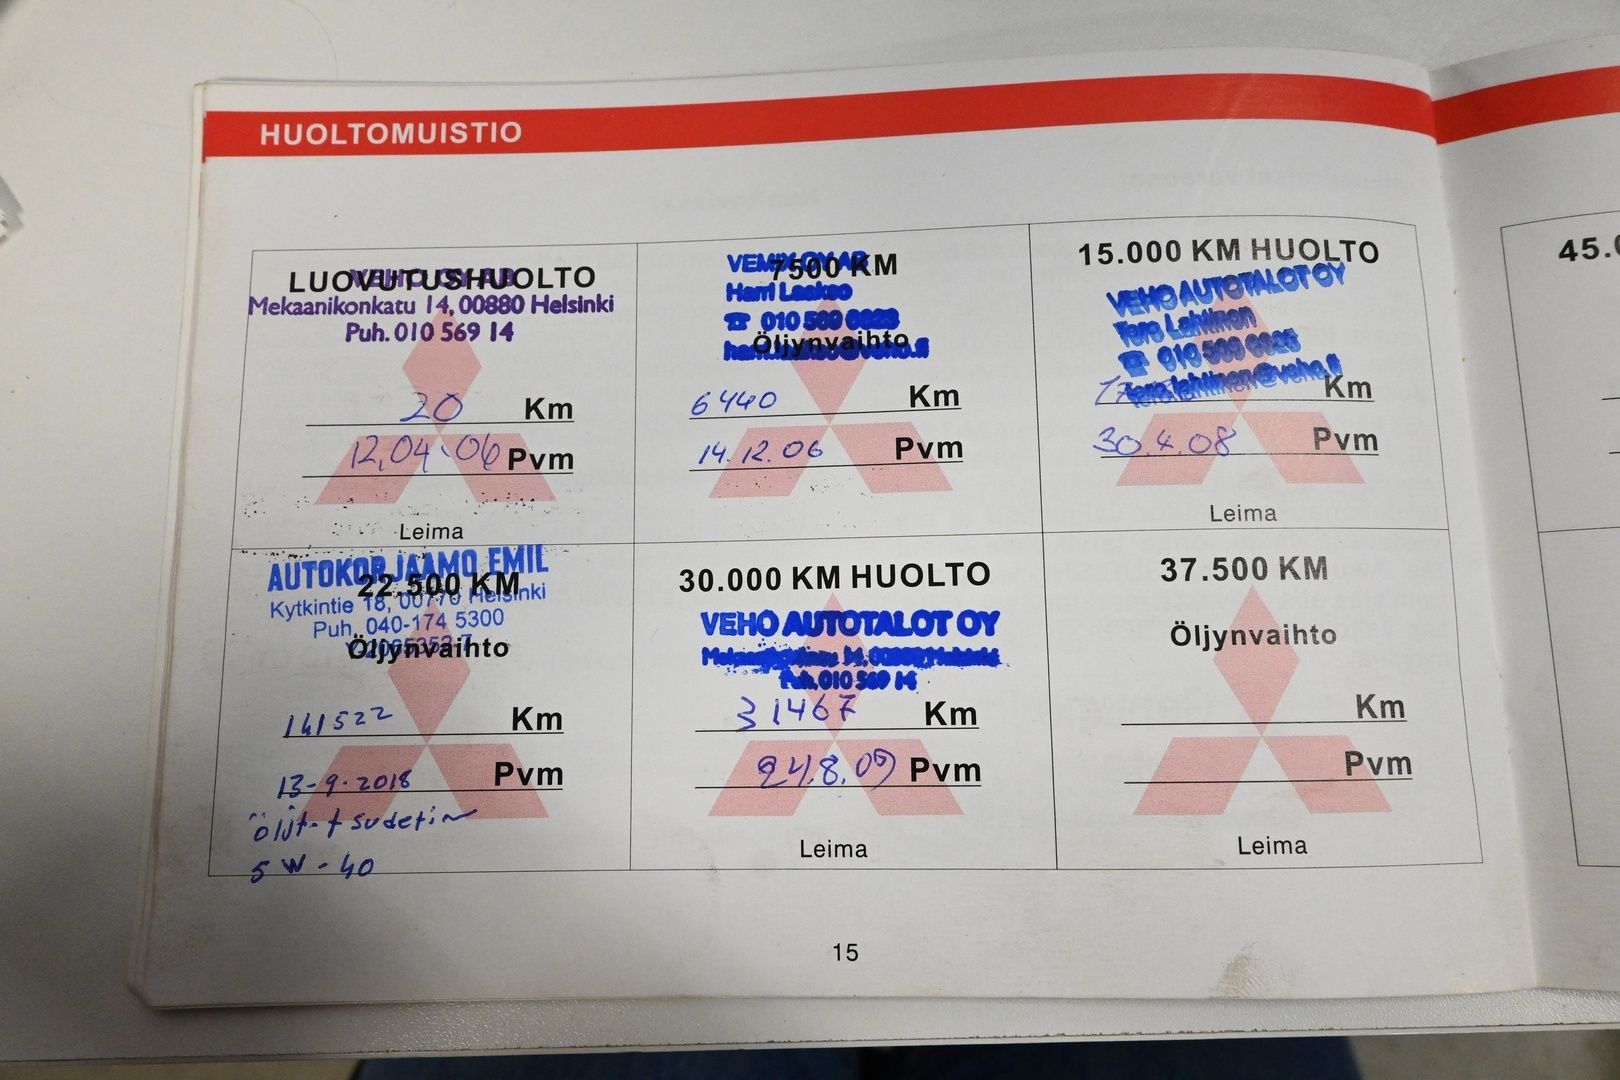 HUOLTOMUISTIO
LUOVUTUSHUOLTO
VEHO OY AB
Mekaanikonkatu 14, 00880 Helsinki
Puh. 010 569 14
20 Km
12.04.06 Pvm
Leima
7500 KM
Harri Laakso
☎ 010 569
Öljynvaihto
6440 Km
14.12.06 Pvm
15.000 KM HUOLTO
VEHO AUTOTALOT OY
Tero Lahtinen
☎ 010 569
tero.lahtinen@veho.fi
Km
30.4.08 Pvm
Leima
AUTOKORJAAMO EMIL
22.500 KM
Kytkintie 18, 00770 Helsinki
Puh. 040-174 5300
Öljynvaihto
141522 Km
13-9-2018 Pvm
öljyt + sudetin
5W-40
30.000 KM HUOLTO
VEHO AUTOTALOT OY
Mekaanikonkatu 14, 00880 Helsinki
Puh. 010 569 14
31467 Km
24.8.09 Pvm
Leima
37.500 KM
Öljynvaihto
Km
Pvm
Leima
15
45.0